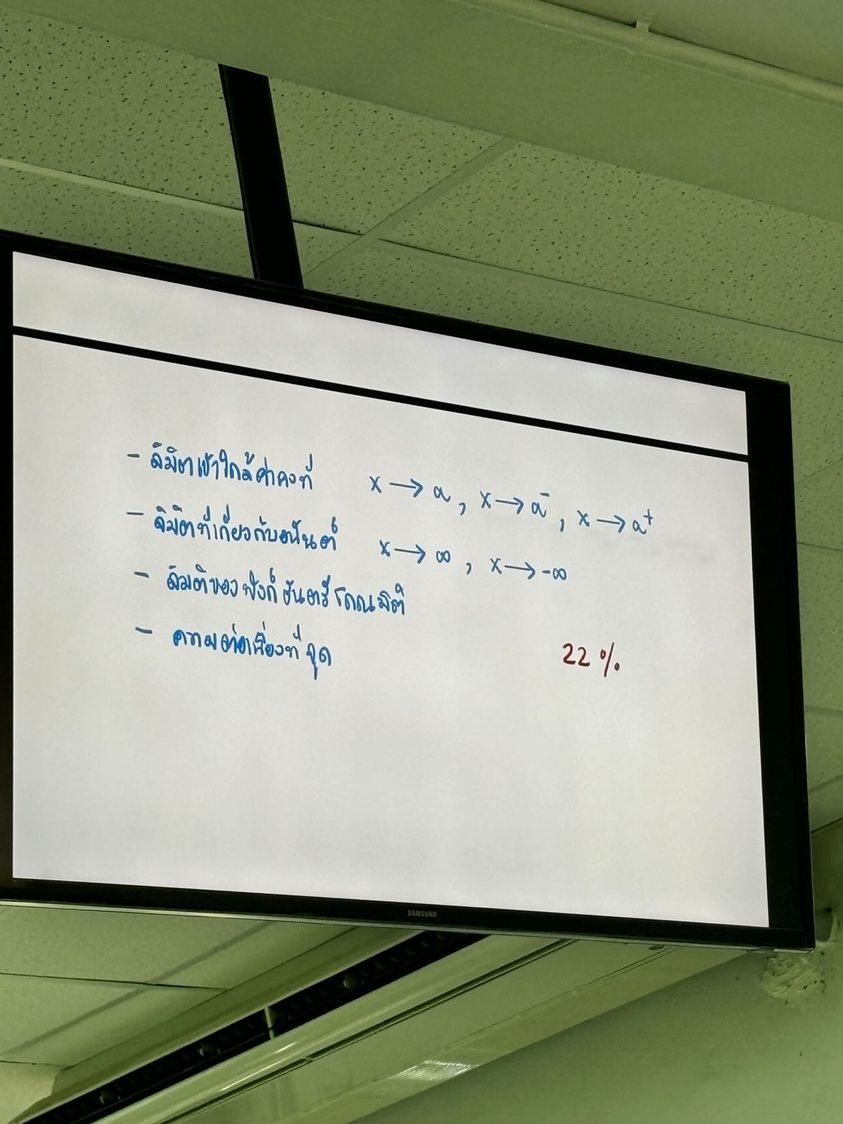 - ลิมิตเข้าใกล้ค่าคงที่ x → a, x → a⁻, x → a⁺
- ลิมิตที่เกี่ยวกับอนันต์ x → ∞, x → -∞
- ลิมิตของฟังก์ชันตรีโกณมิติ
- ความต่อเนื่องที่จุด 22 %
SAMSUNG